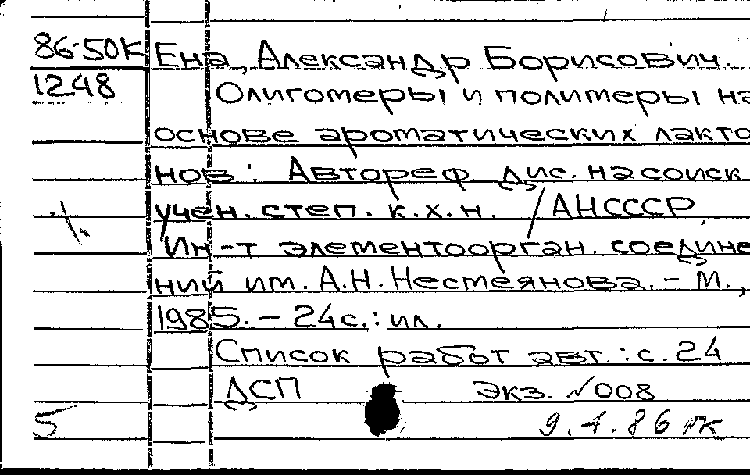 86-50К Ена, Александр Борисович.
1248 Олигомеры и полимеры на
основе ароматических лакто
нов: Автореф. дис. на соиск
учен. степ. к.х.н. / АНСССР,
Ин-т элементоорган. соедине
ний им. А.Н. Несмеянова. - М.,
1985. - 24с.: ил.
Список работ авт.: с. 24
ДСП Экз. №008
5 9.4.86